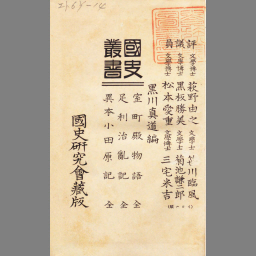 評議員
文學博士 萩野由之
文學博士 黑板勝美
文學博士 松本愛重
川臨風
文學士 菊池謙二郎
文學博士 三宅米吉
(順はろい)
黑川眞道編
國史叢書
室町殿物語 全
足利治亂記 全
異本小田原記 全
國史研究會藏版